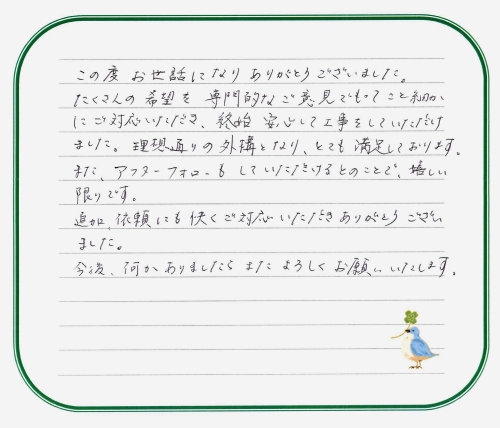 この度 お世話になり ありがとうございました。
たくさんの希望を 専門的なご意見でもって こと細かに
にご対応いただき、終始 安心して工事をしていただけ
ました。理想通りの外構となり、とても満足しております。
また、アフターフォローも していただけるとのことで、嬉しい
限りです。
追加依頼にも快くご対応いただきありがとうござい
ました。
今後、何かありましたら また よろしく お願いいたします。